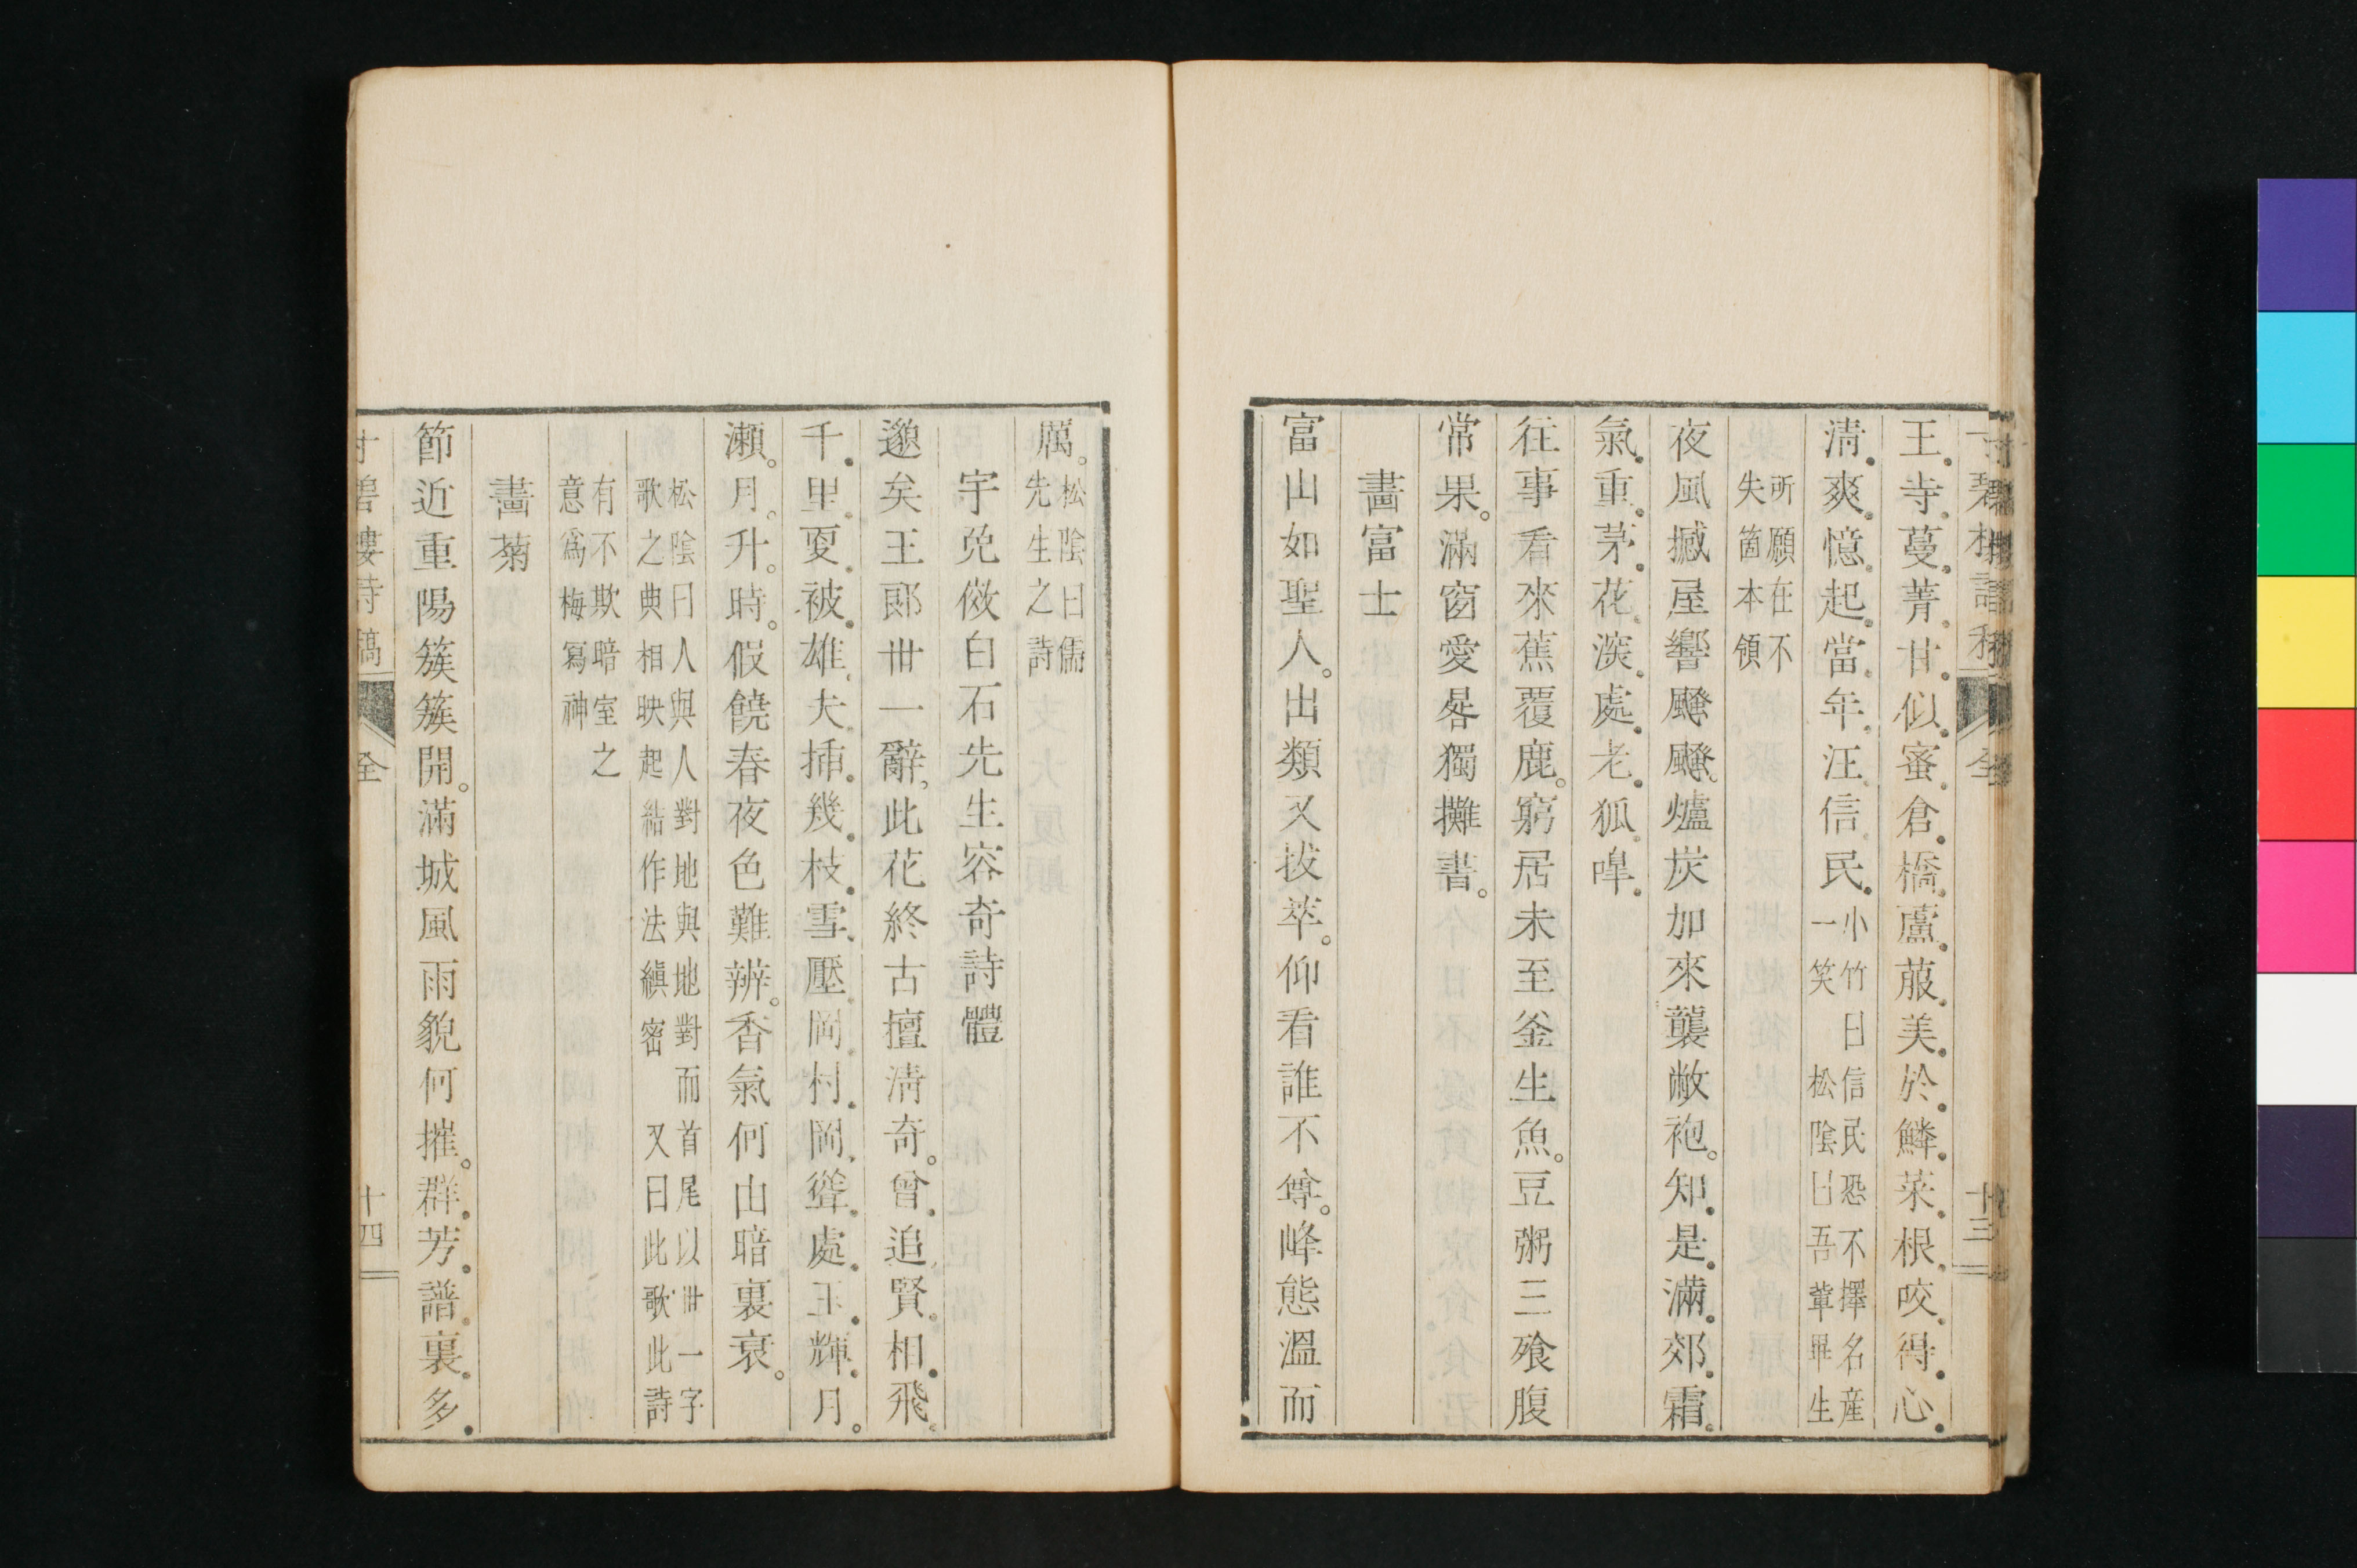 王寺蔓菁甘似蜜倉橋蘆菔美於鱗菜根咬得心
清爽憶起當年汪信民
小竹曰信民恐不擇名産
一笑 松陰曰吾輩畢生
所願在不
失箇本領
夜風撼屋響飂飂爐炭加來襲敝袍知是滿郊霜
氣重茅花深處老狐嘷
往事看來蕉覆鹿窮居未至釜生魚豆粥三飱腹
常果滿窗愛晷獨攤書
畫富士
富山如聖人出類又拔萃仰看誰不尊峰態溫而
十三
厲
松陰曰儒
先生之詩
宇兔倣白石先生容奇詩體
邈矣王郎丗一辭此花終古擅清奇曾追賢相飛
千里更被雄夫插幾枝雪壓岡村岡聳處玉輝月
瀨月升時假饒春夜色難辨香氣何由暗裏衰
松陰曰人與人對地與地對而首尾以丗一字
歌之典相映起結作法縝密 又曰此歌此詩
有不欺暗室之
意爲梅寫神
畫菊
節近重陽簇簇開滿城風雨貌何摧群芳譜裏多
寸碧樓詩稿 全 十四